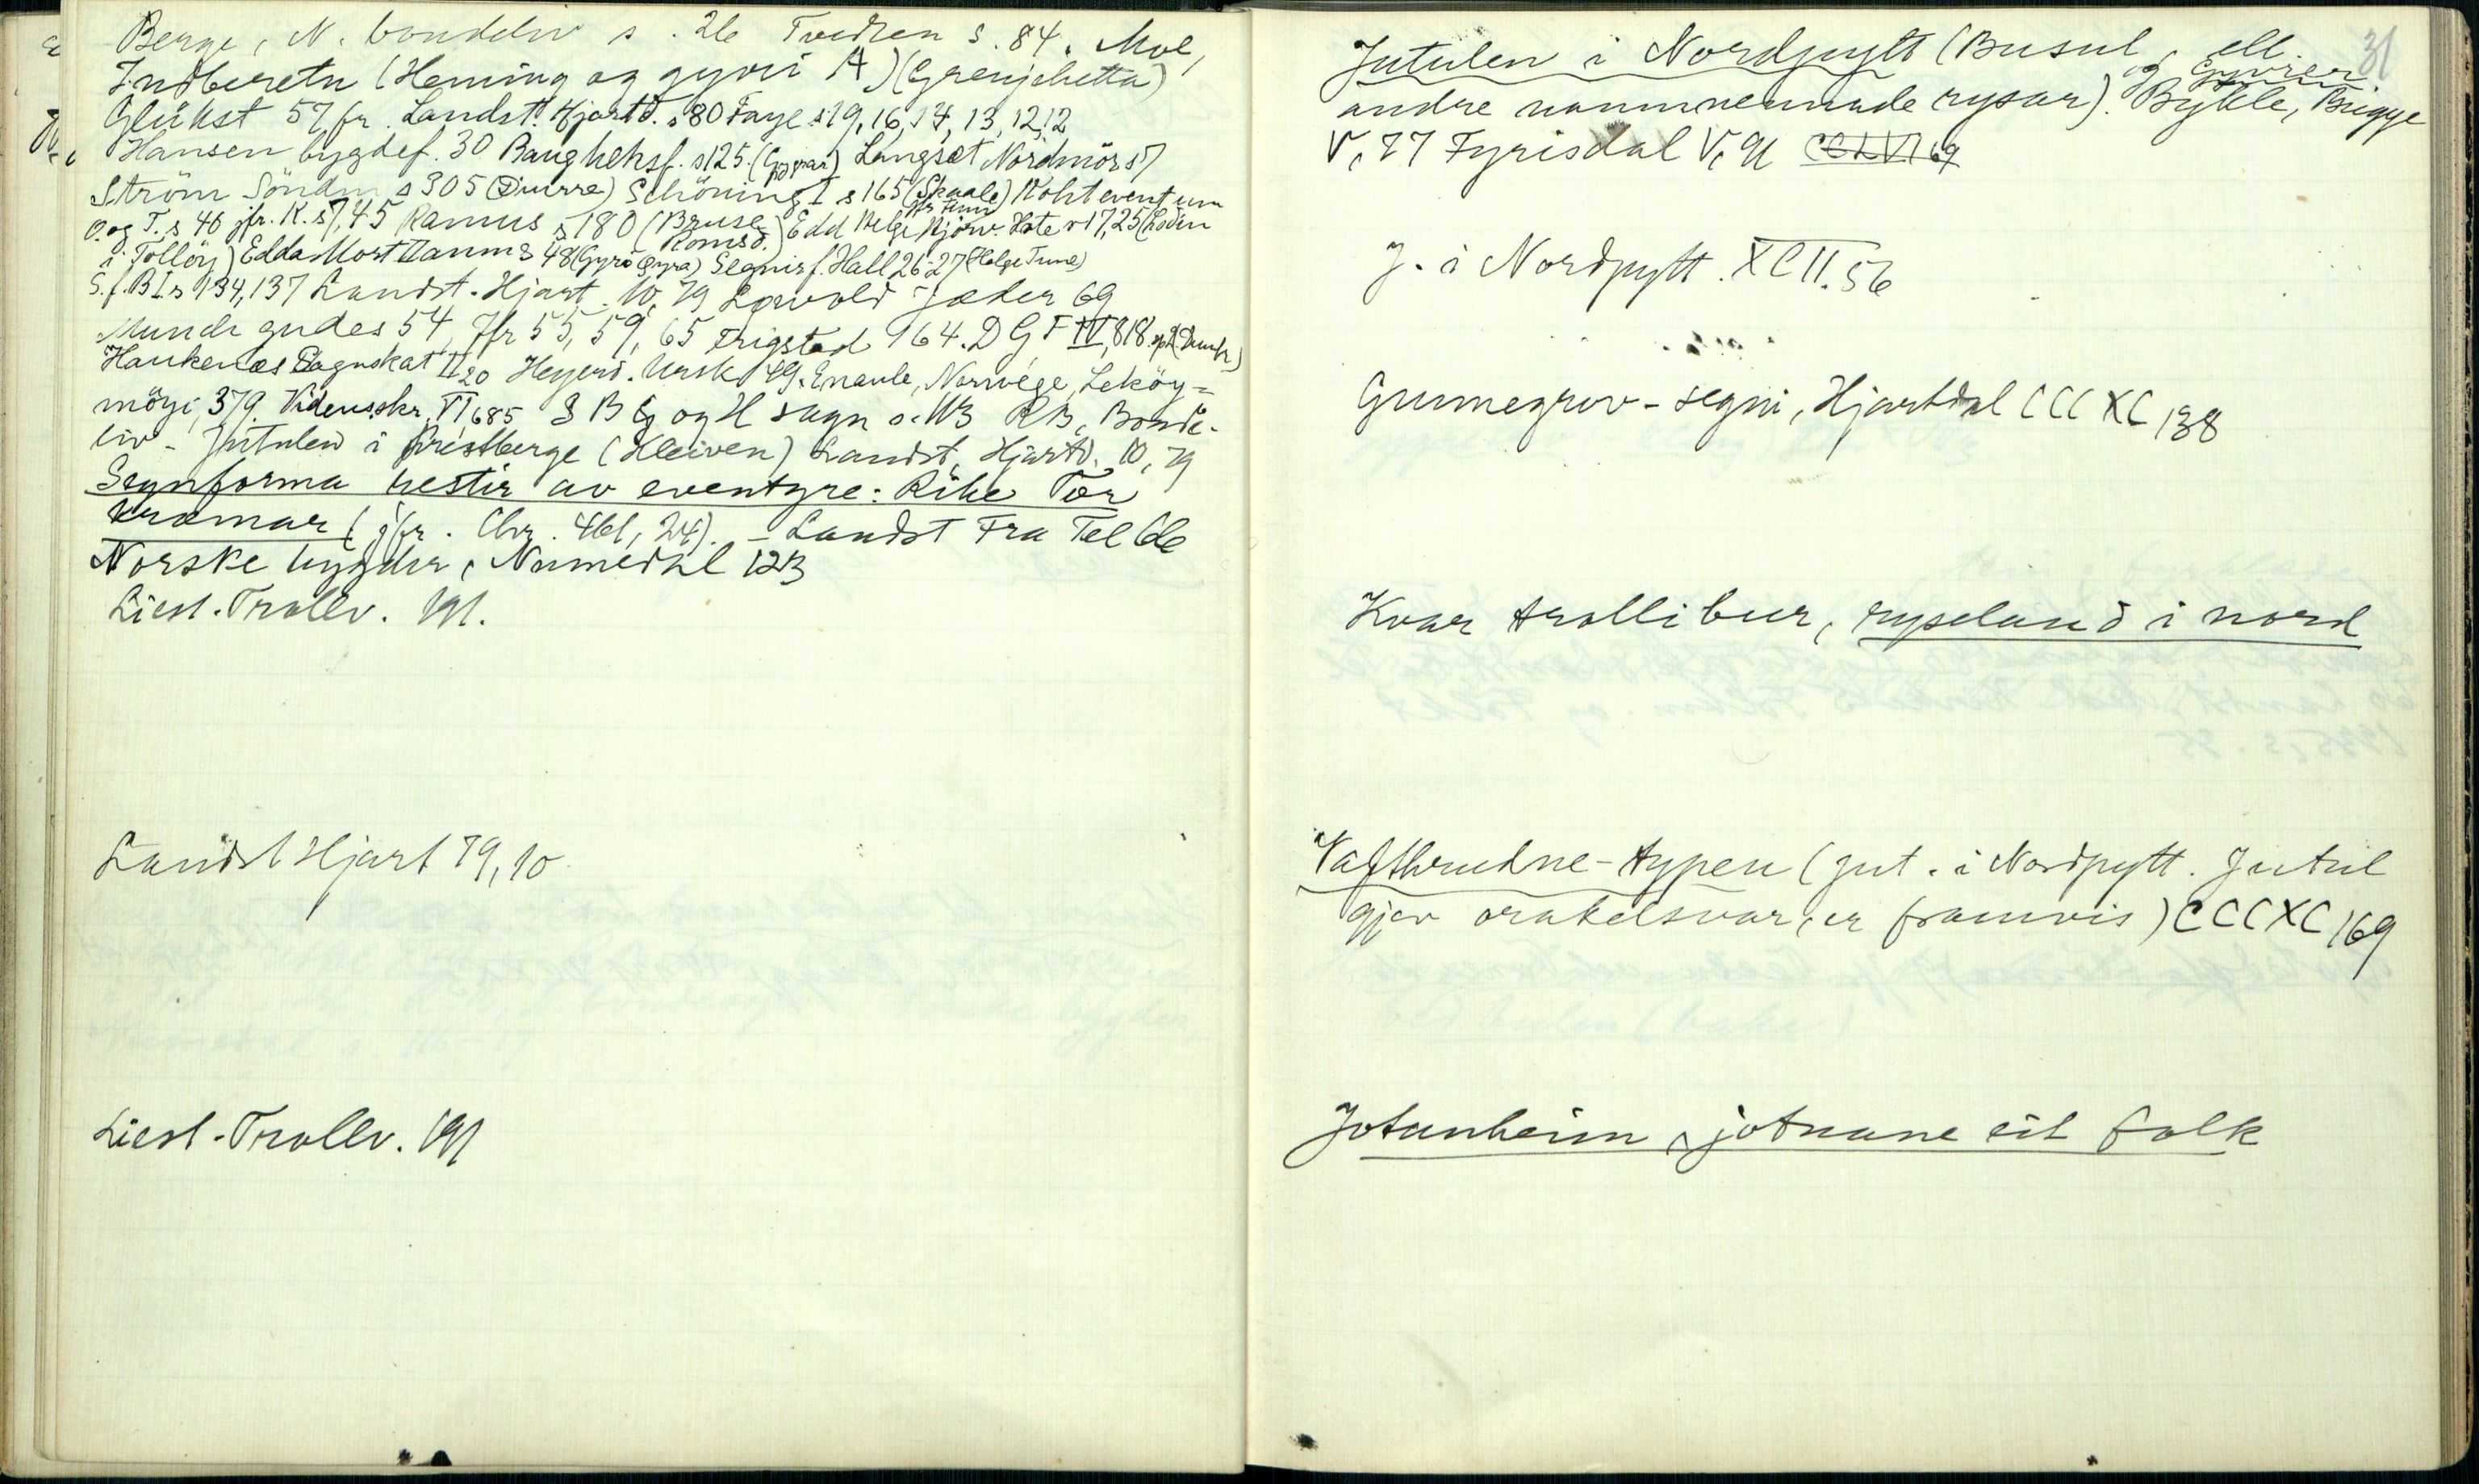 Berge, N. bondeliv s. 26 Tvedten s. 84. Moe,
Indberetn (Heming og gyvri A) (Grenjehetta)
Glükst 57, fr. Landst. Hjartd. s 80 Faye s 19, 16, 14, 13, 12, 12
Hansen bygdef. 30 Baugheksf. s 125. Langset Nordmörs 7
Ström Söndm s 305 Schöning I s 165 (Skaale) Kohtevent um
O. og T. s 46 jfr. K. s 7, 45 Ramus s 180 (Bruse Romsd.) Edd Helge Hjörv. Hate v 17, 25 (Lodin
i Tolløy) Edda Mort s 48 (Gyri Gyra) Segnir f. Hall 26-27 (Helge Tune)
S. f. B I s 134, 137 Landst. Hjart. 10, 79 Jæder 69
Munch gudes 54, Jfr 55, 59, 65 Trigstad 164. D G F IV, 818
Haukenæs Sagnskat II 20 Heyerd. Ursk 49. Enault, Norvège, Leköy=
möyi, 379. Vidensskr. VI, 685 S B og H sagn o. 113 RB, Bonde-
liv - Jutulen i Prestberge (Kleiven) Landst, Hjartd. 10, 79
Segnforma hestir av eventyre: Rike Per
kræmar (jfr. Chr. 461, 24). - Landst Fra Tel 66
Norske bygder, Numedal 123
Liest. Trollv. 191.
Landst Hjart 79, 10
Liest. Trollv. 191
31
Jutulen i Nordpytt (Busul, ell.
andre namnnemnde rysar). og Gyvrien Bykle, Bugge
V, 77 Fyrisdal V, 91 CCLVI 69
J. i Nordpytt. XCII. 56
Gunnegrov-segni, Hjartdal CCCXC 138
Kvar trolli bur, ryseland i nord
Vafthrudne-typen (Jut. i Nordpytt. Jutul
gjev orakelsvar, er framvis) CCCXC 169
Jotunheim, jotnane eit folk